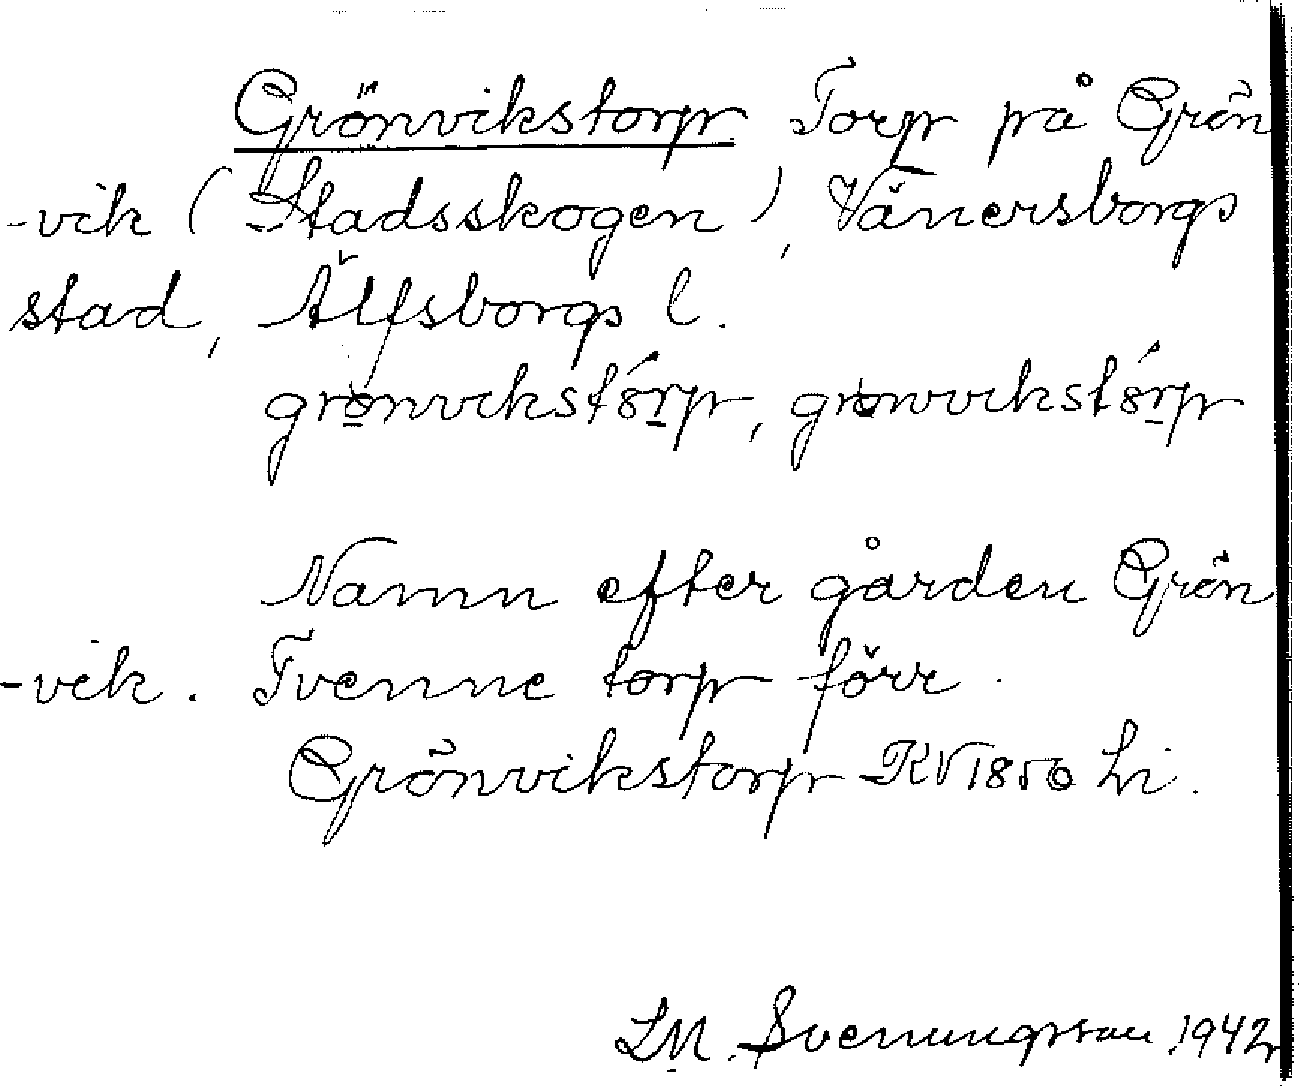 Grönvikstorp Torp på Grön
-vik (Stadsskogen), Vänersborgs
stad, Älfsborgs l.
Namn efter gården Grön
-vik. Tvenne torp förr.
Grönvikstorp KV 1850 Li.
LM. Svenungsson 1942